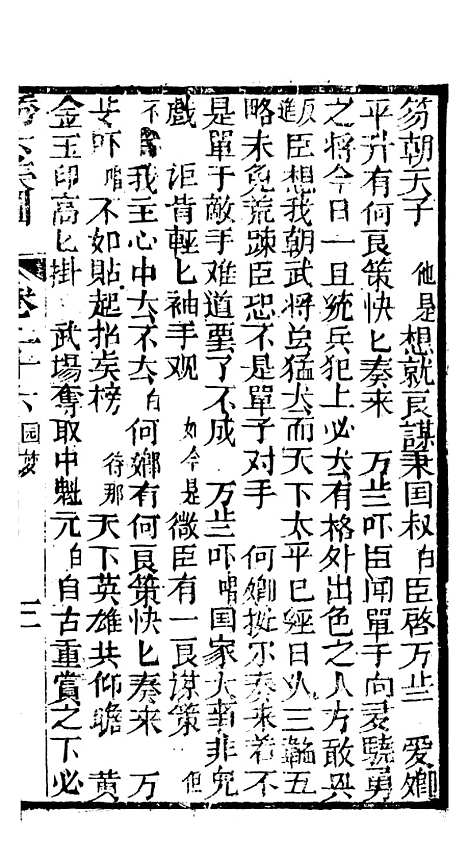 笏朝天子　他是想就良謀秉国叔白臣啓万岁　爱卿
平升有何良策快匕奏来　万岁吓臣闻單于向来驍勇
之将今日一旦兴兵犯上必然有格外出色之人方敢興
反進臣想我朝武将总猛然而天下太平已經日久三韜五
略未免荒踈臣恐不是單于对手　何卿按不奏来若不
是單于敵手难道罢了不成　万岁吓唱国家大事非兒
戯　詎肯輕匕袖手观　如今是微臣有一良謀策　但
不　我主心中太不太白何卿有何良策快匕奏来　万
岁吓唱不如貼起招矣榜　待那天下英雄共仰瞻　黄
金玉印高匕掛　武場奪取中魁元白自古重賞之下必
卷二十六　园梦　三